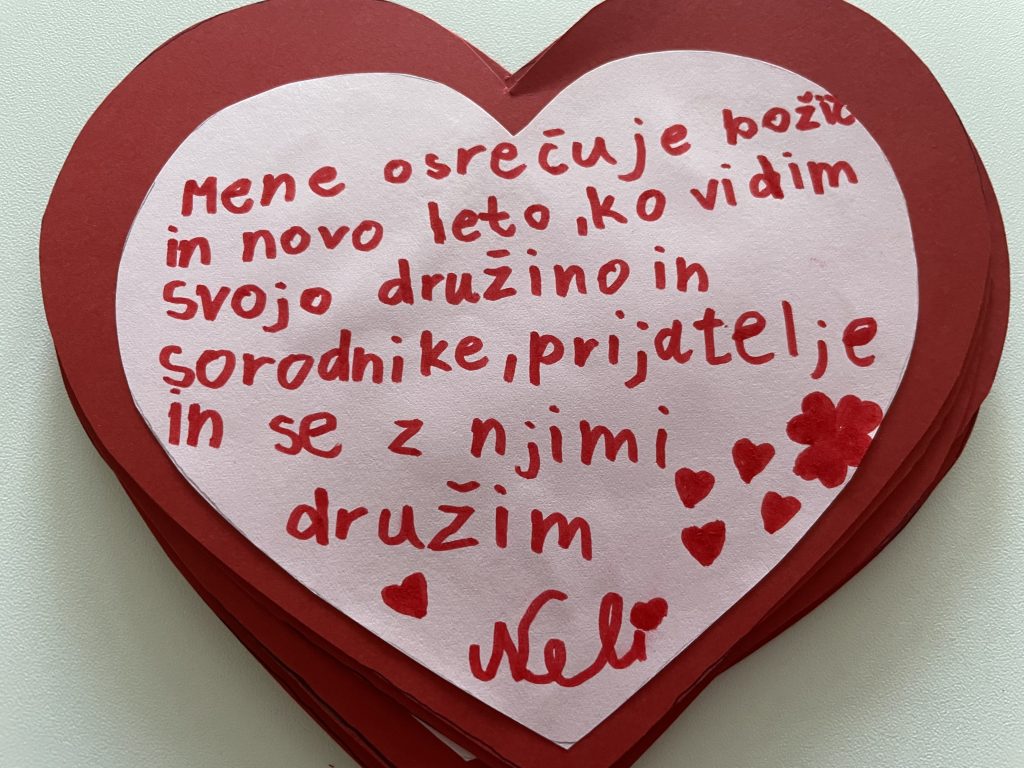 Mene osrečuje božič
in novo leto, ko vidim
svojo družino in
sorodnike, prijatelje
in se z njimi
družim
Neli